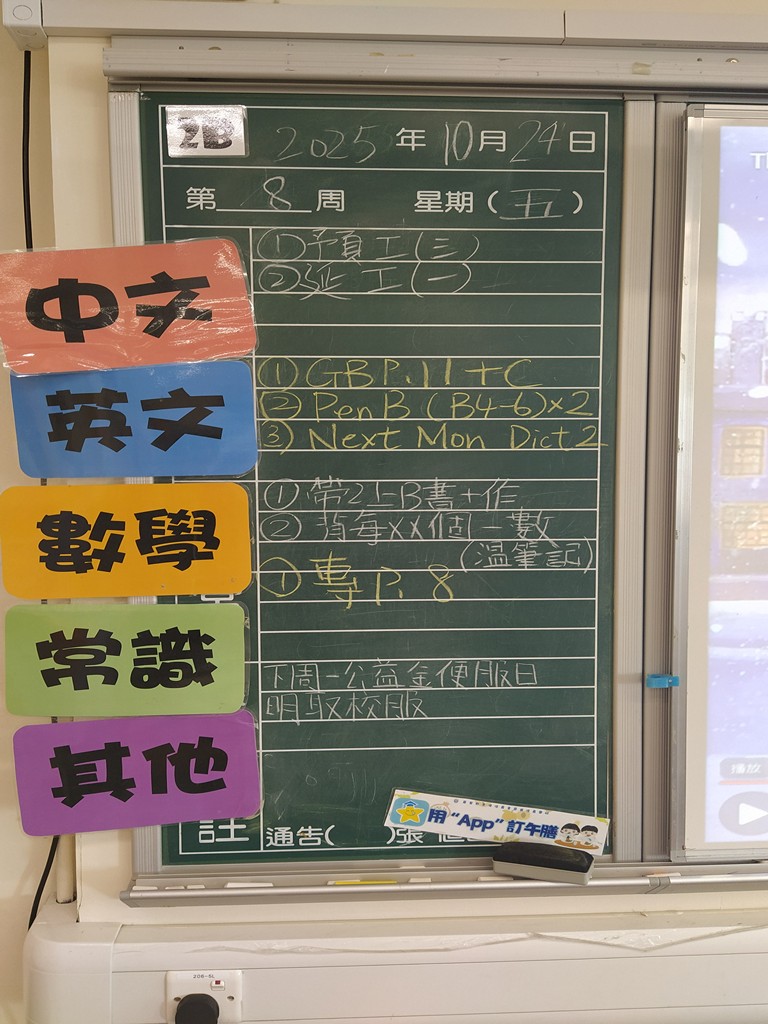 2B 2025年10月24日
第 8 周 星期(五)
中文
①預工(三)
②延工(一)
英文
①GB P.11+C
②Pen B (B4-6)×2
③Next Mon Dict 2
數學
①帶2上B書+作
②背每XX個一數
(溫筆記)
常識
①專P.8
其他
下周一公益金便服日
明取校服
註 通告( )張
用“App”訂午膳
播放
206-5L